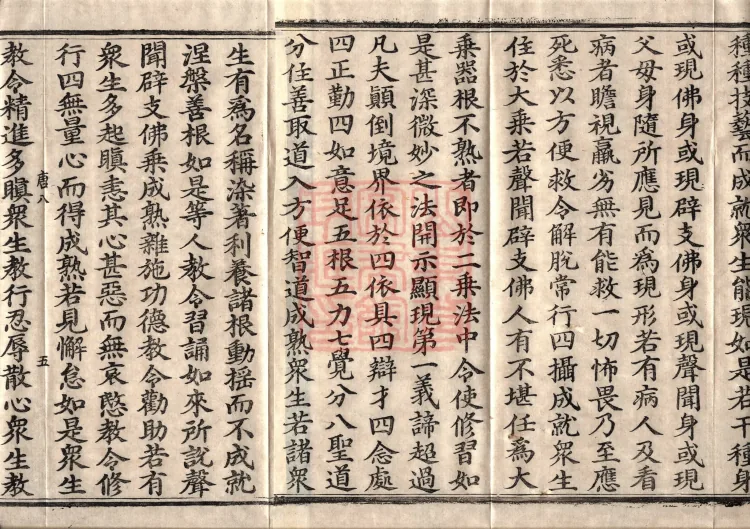 種種技藝而成就衆生能現如是若干種身
或現佛身或現辟支佛身或現聲聞身或現
父母身隨所應見而為現形若有病人及看
病者瞻視羸劣無有能救一切怖畏乃至應
死悉以方便救令解脫常行四攝成就衆生
住於大乘若聲聞辟支佛人有不堪任為大
乘器根不熟者即於二乘法中令使修習如
是甚深微妙之法開示顯現第一義諦超過
凡夫顛倒境界依於四依具四辯才四念處
四正勤四如意足五根五力七覺分八聖道
分住善取道入方便智道成熟衆生若諸衆
生有為名稱染著利養諸根動搖而不成就
涅槃善根如是等人教令習誦如來所說聲
聞辟支佛乘成熟雜施功德教令勸助若有
衆生多起瞋恚其心甚惡而無哀愍教令修
行四無量心而得成熟若見懈怠如是衆生
唐八 五
教令精進多瞋衆生教行忍辱散心衆生教